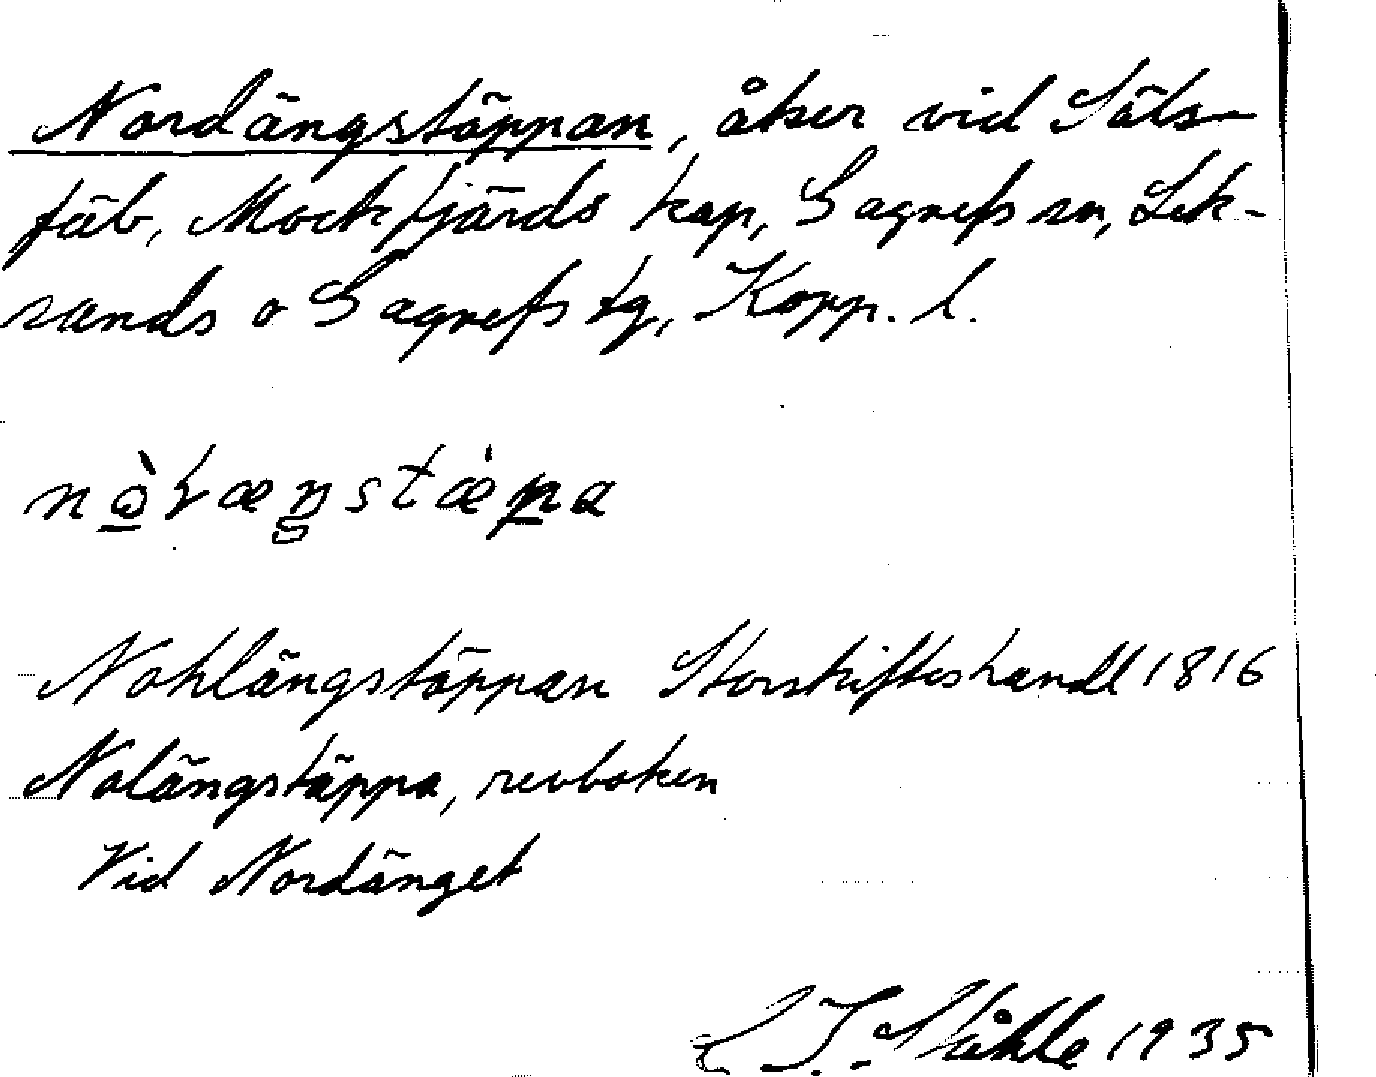 Nordängstäppan, åker vid Säls-
fäb, Mockfjärds kap, Gagnefs sn, Lek-
sands o Gagnefs tg, Kopp. l.
Nohlängstäppan Storskifteshandl 1816
Nolängstäppa, revboken
Vid Nordänget
C I. Ståhle 1935